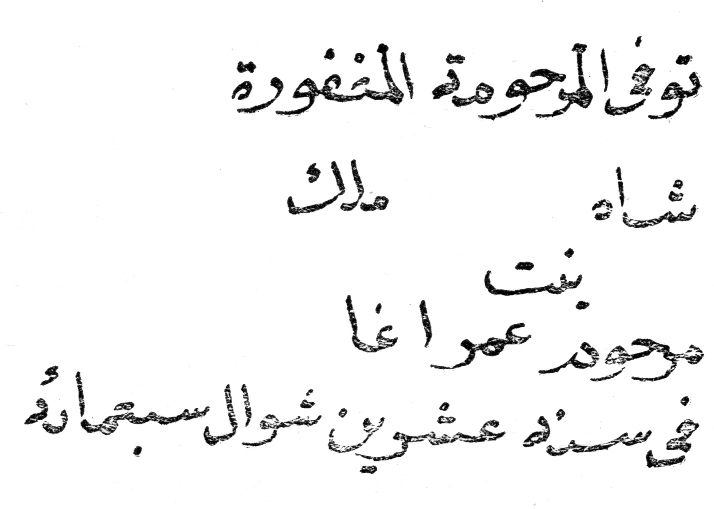 توفى المرحومة المغفورة
شاه ملك
بنت
مرحوم عمر اغا
فى سنه عشرين شوال سبعمائه